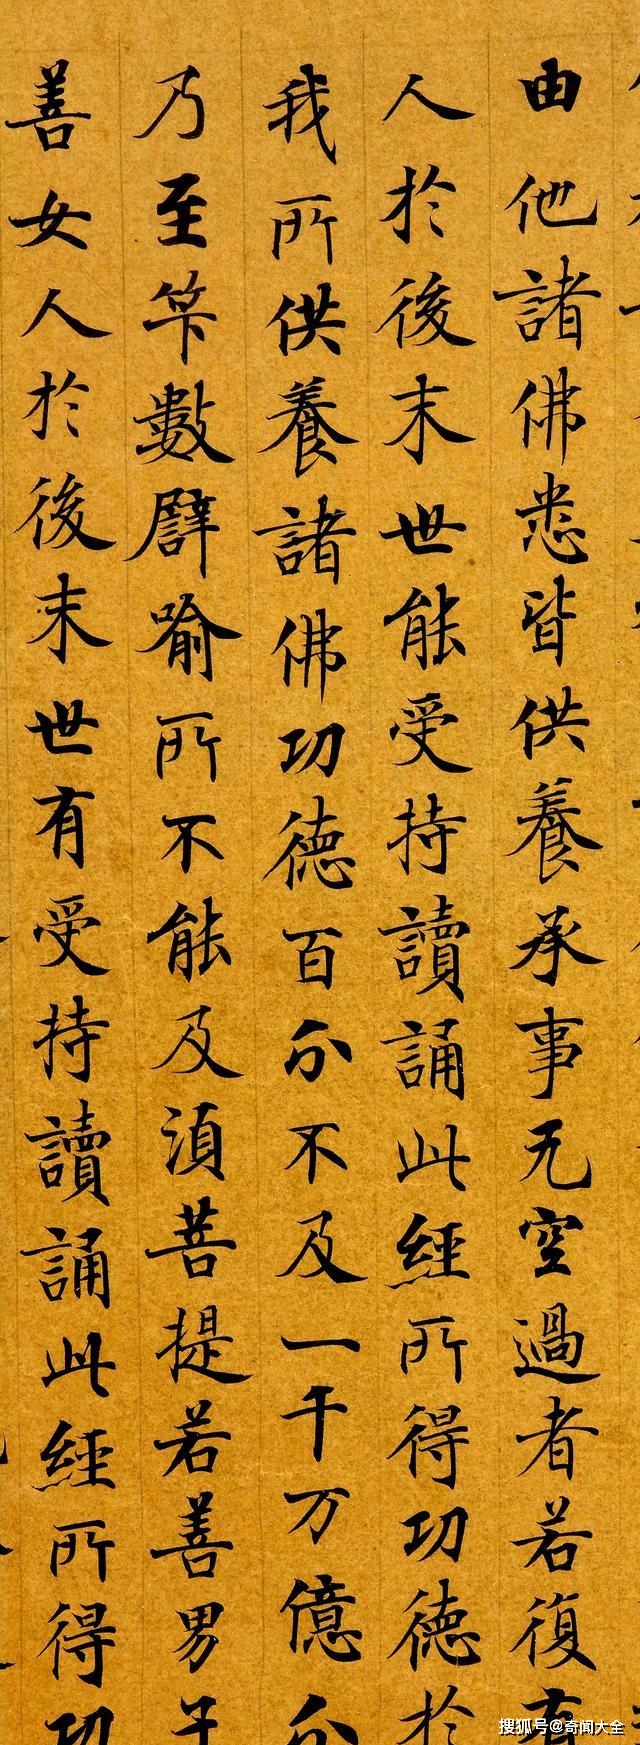 由他諸佛悉皆供養承事无空過者若復有
人於後末世能受持讀誦此經所得功德於
我所供養諸佛功德百分不及一千万億分
乃至笇數譬喻所不能及須菩提若善男子
善女人於後末世有受持讀誦此經所得功
搜狐号@奇闻大全